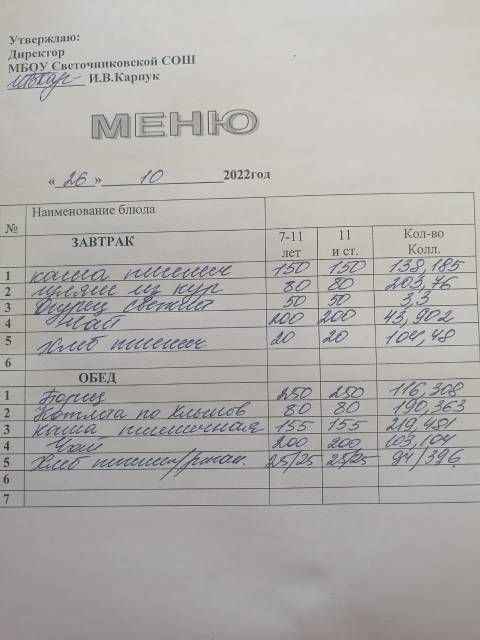 Утверждаю:
Директор
МБОУ Светочниковской СОШ
И.В.Карпук
МЕНЮ
« 26 » 10 2022год
№ Наименование блюда
ЗАВТРАК 7-11 лет 11 и ст. Кол-во Колл.
1 каша пшенич 150 150 138,185
2 гуляш из кур 80 80 203,76
3 Огурец свежий 50 50 3,3
4 Чай 200 200 43,902
5 Хлеб пшенич 20 20 104,48
6
ОБЕД
1 Борщ 250 250 116,308
2 Котлета по Хлынов 80 80 190,363
3 Каша пшеничная 155 155 219,481
4 Чай 200 200 103,104
5 Хлеб пшенич/ржан. 25/25 25/25 94/396
6
7